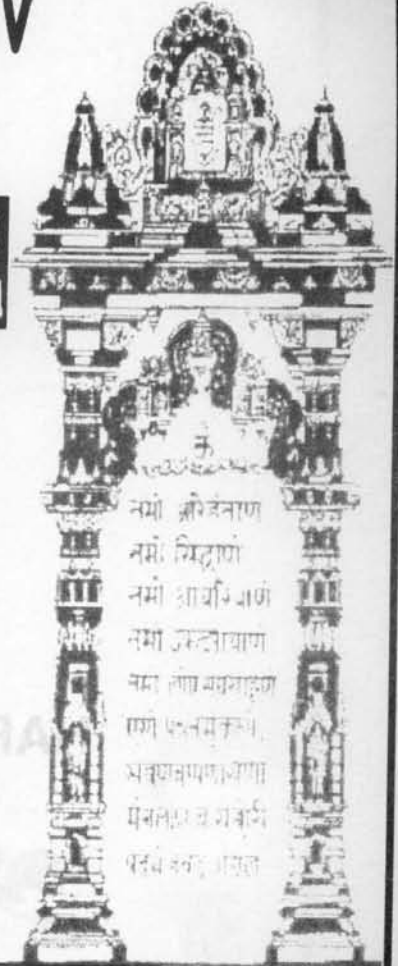 ॐ
नमो अरिहंताणं
नमो सिद्धाणं
नमो आयरियाणं
नमो उवज्झायाणं
नमो लोए सव्वसाहूणं
एसो पंचनमुक्कारो
सव्वपावप्पणासणो
मंगलाणं च सव्वेसिं
पढमं हवइ मंगलं